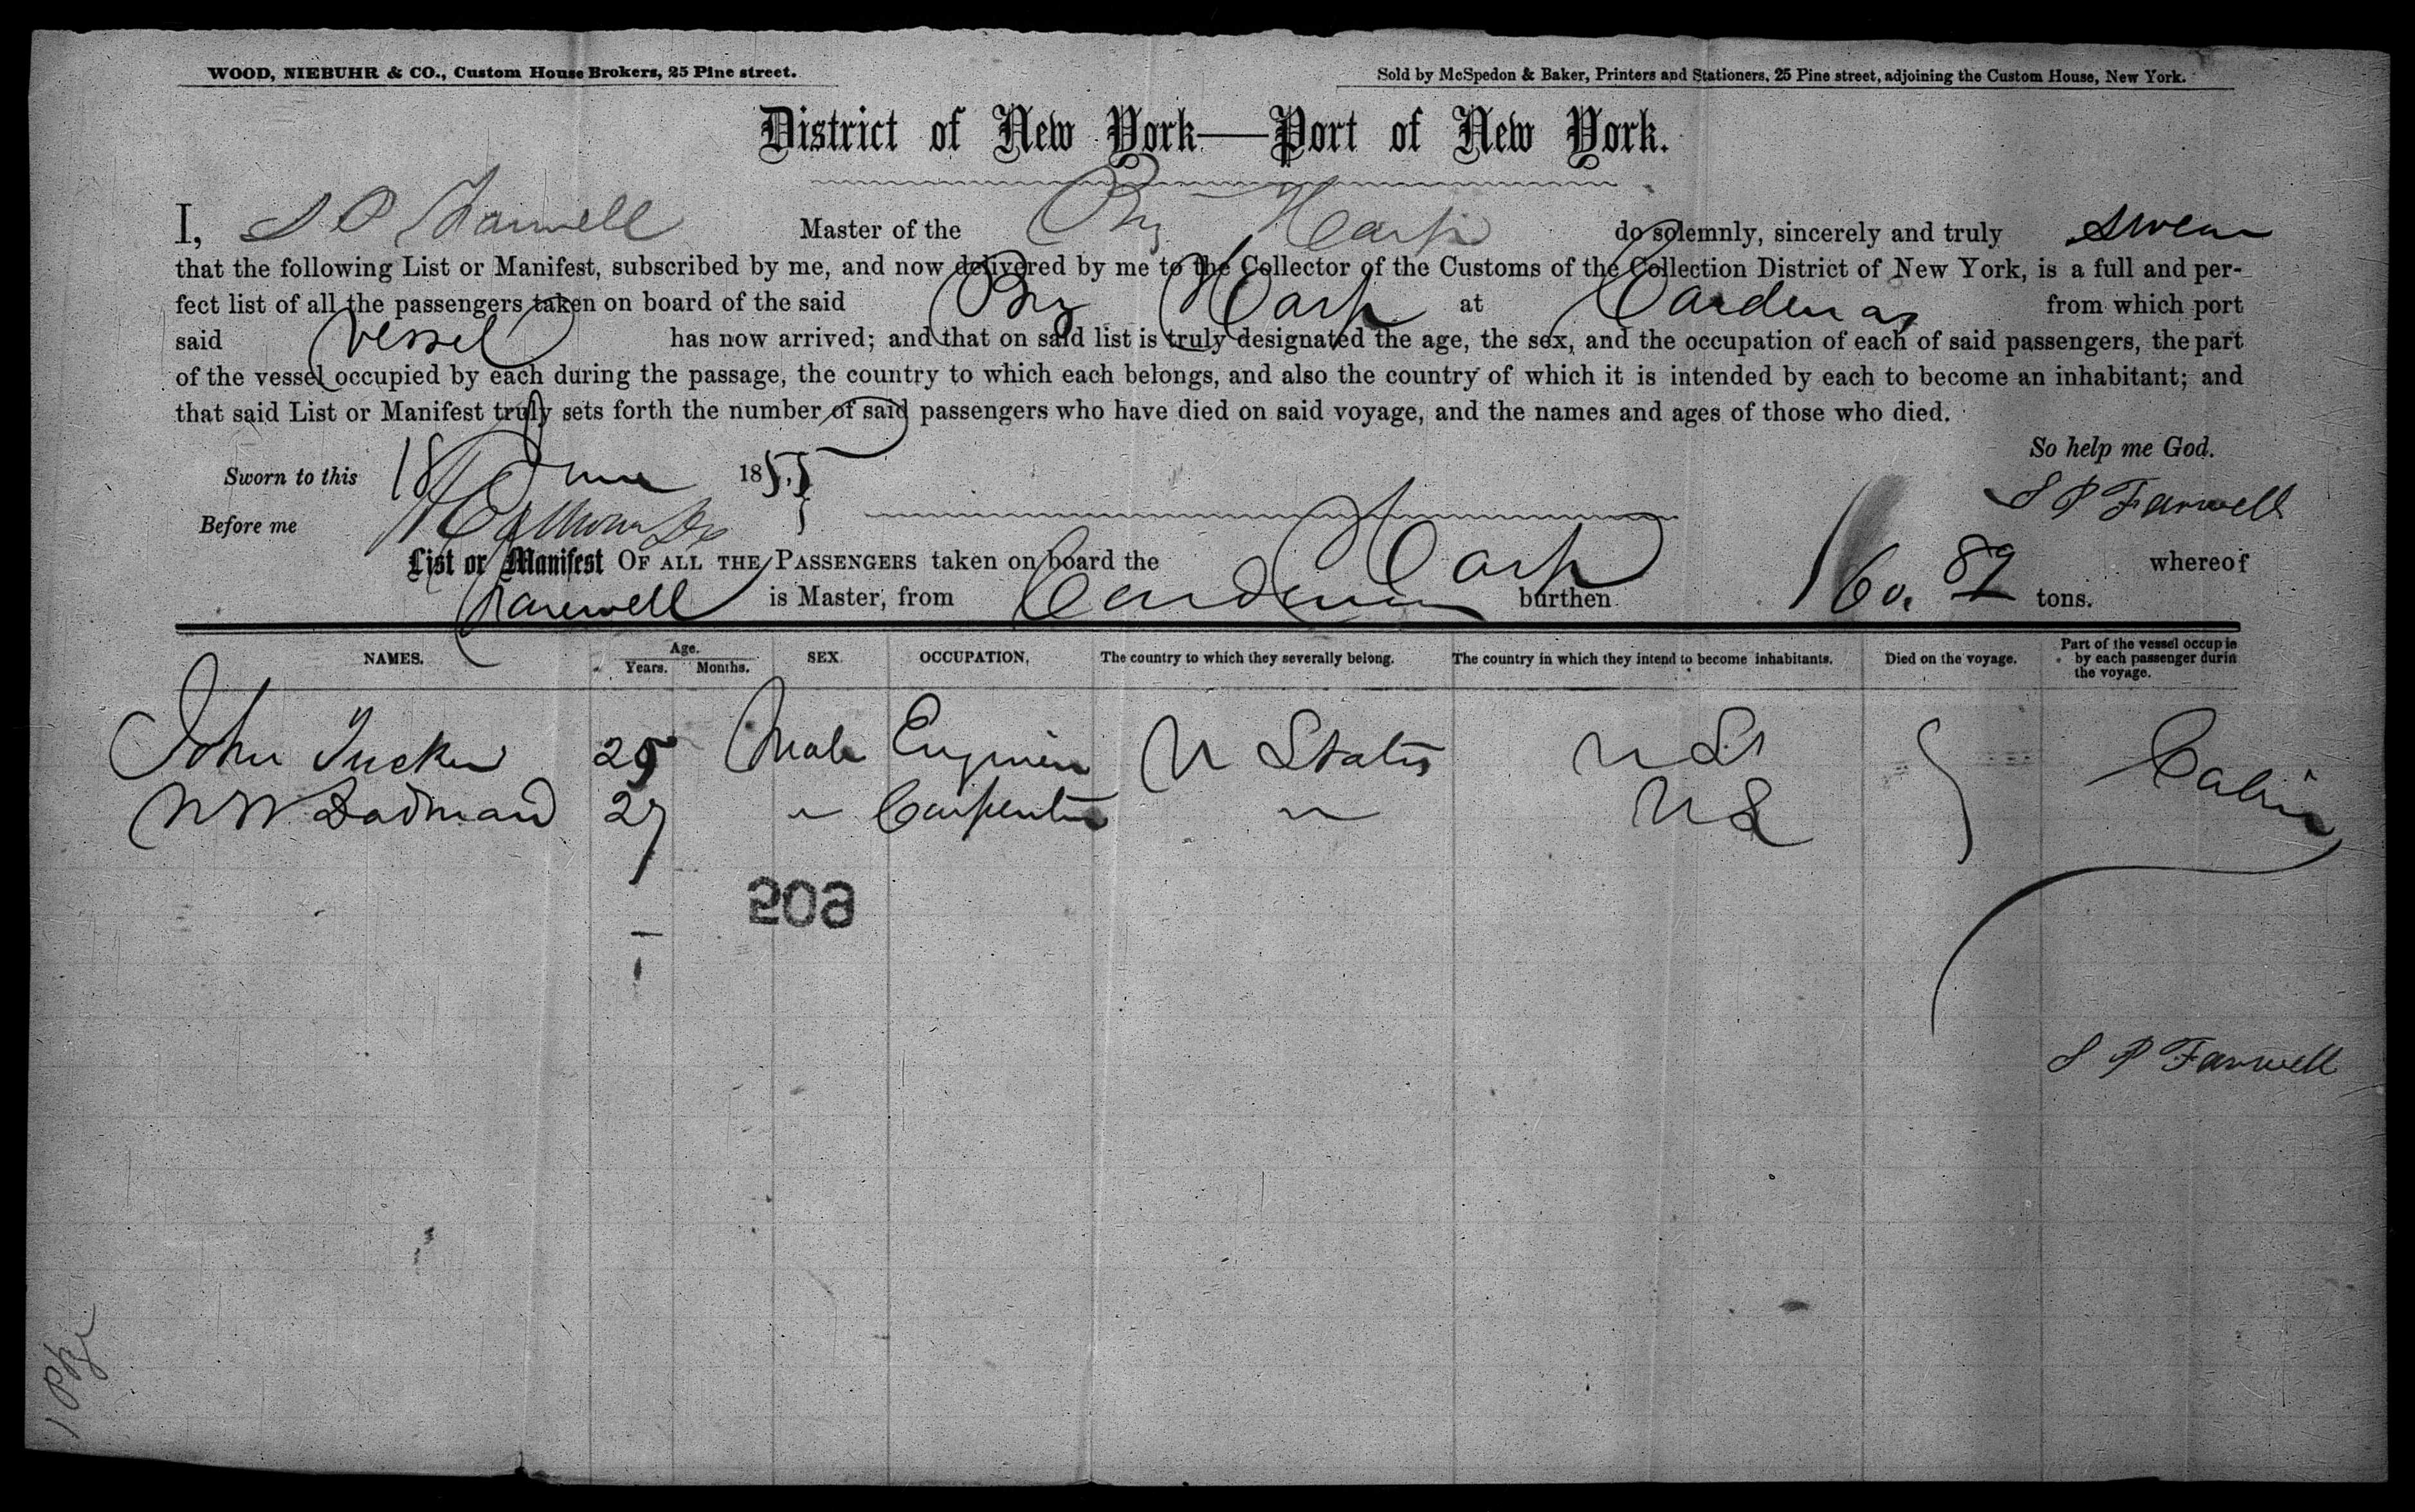 WOOD, NIEBUHR & CO., Custom House Brokers, 25 Pine street. Sold by McSpedon & Baker, Printers and Stationers, 25 Pine street, adjoining the Custom House, New York.
District of New York—Port of New York.
I, S P Farwell Master of the Brig Harp do solemnly, sincerely and truly swear
that the following List or Manifest, subscribed by me, and now delivered by me to the Collector of the Customs of the Collection District of New York, is a full and per-
fect list of all the passengers taken on board of the said Brig Harp at Cardenas from which port
said Vessel has now arrived; and that on said list is truly designated the age, the sex, and the occupation of each of said passengers, the part
of the vessel occupied by each during the passage, the country to which each belongs, and also the country of which it is intended by each to become an inhabitant; and
that said List or Manifest truly sets forth the number of said passengers who have died on said voyage, and the names and ages of those who died.
So help me God.
Sworn to this 18 June 1855
S P Farwell
Before me
List or Manifest OF ALL THE PASSENGERS taken on board the Harp whereof
Farewell is Master, from Cardenas burthen 160. 89 tons.
NAMES. Age. Years. Months. SEX. OCCUPATION, The country to which they severally belong. The country in which they intend to become inhabitants. Died on the voyage. Part of the vessel occupie by each passenger durin the voyage.
John Tucker 25 Male Engineer U States U St Cabin
27 " Carpenter " U S
209
S P Farwell